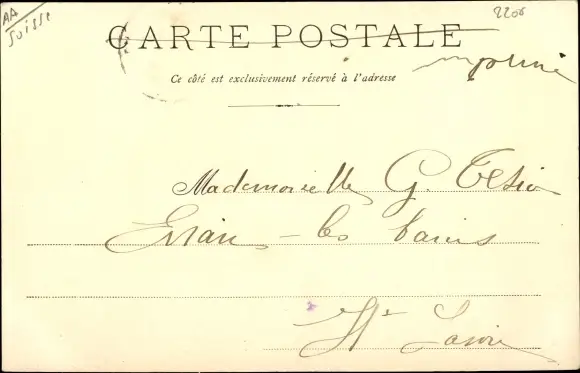 AA
Suisse
2200
CARTE POSTALE
imprimé
Ce côté est exclusivement réservé à l'adresse
Mademoiselle G.
Evian-les bains
Hte Savoie